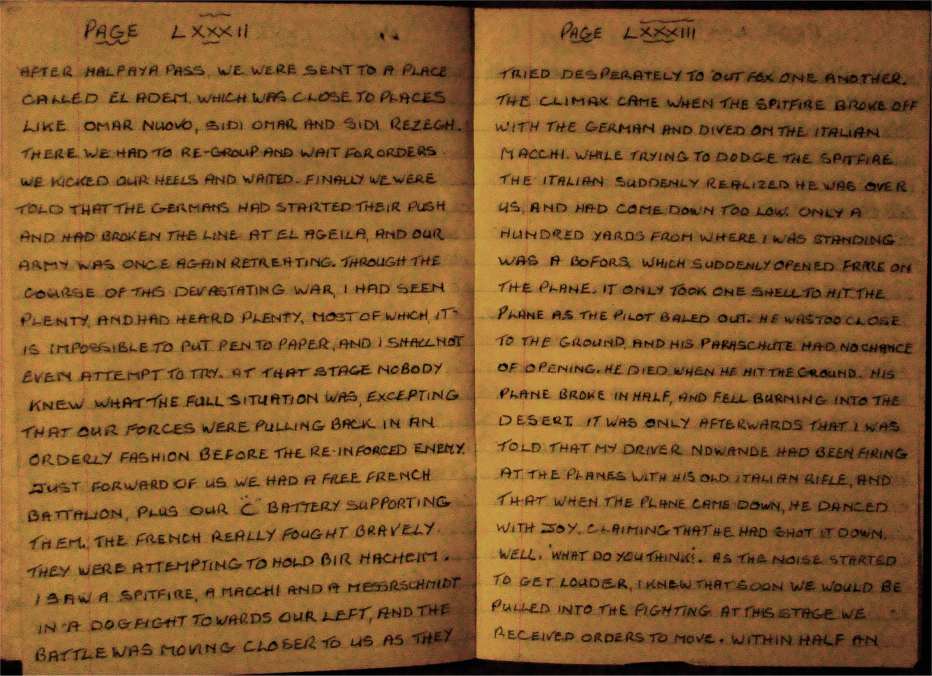 PAGE LXXXII
AFTER HALFAYA PASS, WE WERE SENT TO A PLACE
CALLED EL ADEM. WHICH WAS CLOSE TO PLACES
LIKE OMAR NUOVO, SIDI OMAR AND SIDI REZEGH.
THERE WE HAD TO RE-GROUP AND WAIT FOR ORDERS
WE KICKED OUR HEELS AND WAITED. FINALLY WE WERE
TOLD THAT THE GERMANS HAD STARTED THEIR PUSH
AND HAD BROKEN THE LINE AT EL AGEILA, AND OUR
ARMY WAS ONCE AGAIN RETREATING. THROUGH THE
COURSE OF THIS DEVASTATING WAR, I HAD SEEN
PLENTY, AND HAD HEARD PLENTY, MOST OF WHICH, IT
IS IMPOSSIBLE TO PUT PEN TO PAPER, AND I SHALL NOT
EVEN ATTEMPT TO TRY. AT THAT STAGE NOBODY
KNEW WHAT THE FULL SITUATION WAS, EXCEPTING
THAT OUR FORCES WERE PULLING BACK IN AN
ORDERLY FASHION BEFORE THE RE-INFORCED ENEMY.
JUST FORWARD OF US WE HAD A FREE FRENCH
BATTALION, PLUS OUR "C" BATTERY SUPPORTING
THEM. THE FRENCH REALLY FOUGHT BRAVELY.
THEY WERE ATTEMPTING TO HOLD BIR HACHEIM.
I SAW A SPITFIRE, A MACCHI AND A MESSRSCHMIDT
IN A DOGFIGHT TOWARDS OUR LEFT, AND THE
BATTLE WAS MOVING CLOSER TO US AS THEY
PAGE LXXXIII
TRIED DESPERATELY TO OUT FOX ONE ANOTHER.
THE CLIMAX CAME WHEN THE SPITFIRE BROKE OFF
WITH THE GERMAN AND DIVED ON THE ITALIAN
MACCHI. WHILE TRYING TO DODGE THE SPITFIRE
THE ITALIAN SUDDENLY REALIZED HE WAS OVER
US, AND HAD COME DOWN TOO LOW. ONLY A
HUNDRED YARDS FROM WHERE I WAS STANDING
WAS A BOFORS, WHICH SUDDENLY OPENED FIRE ON
THE PLANE. IT ONLY TOOK ONE SHELL TO HIT THE
PLANE AS THE PILOT BALED OUT. HE WAS TOO CLOSE
TO THE GROUND, AND HIS PARASCHUTE HAD NO CHANCE
OF OPENING. HE DIED WHEN HE HIT THE GROUND. HIS
PLANE BROKE IN HALF, AND FELL BURNING INTO THE
DESERT. IT WAS ONLY AFTERWARDS THAT I WAS
TOLD THAT MY DRIVER NDWANDE HAD BEEN FIRING
AT THE PLANES WITH HIS OLD ITALIAN RIFLE, AND
THAT WHEN THE PLANE CAME DOWN, HE DANCED
WITH JOY. CLAIMING THAT HE HAD SHOT IT DOWN.
WELL. 'WHAT DO YOU THINK'. AS THE NOISE STARTED
TO GET LOUDER, I KNEW THAT SOON WE WOULD BE
PULLED INTO THE FIGHTING AT THIS STAGE WE
RECEIVED ORDERS TO MOVE. WITHIN HALF AN